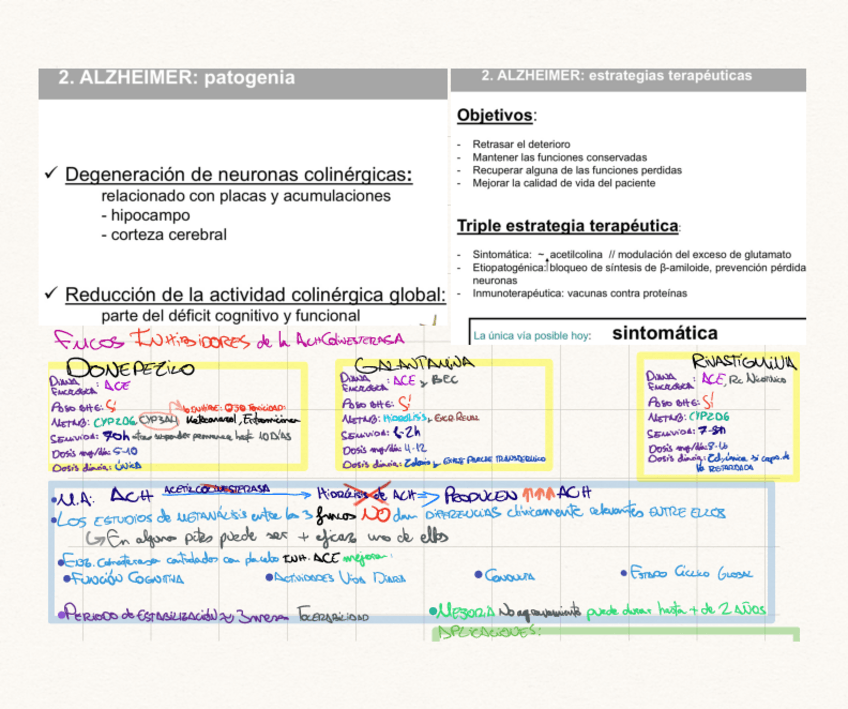 2. ALZHEIMER: patogenia
✓ Degeneración de neuronas colinérgicas:
relacionado con placas y acumulaciones
- hipocampo
- corteza cerebral
✓ Reducción de la actividad colinérgica global:
parte del déficit cognitivo y funcional
2. ALZHEIMER: estrategias terapéuticas
Objetivos:
- Retrasar el deterioro
- Mantener las funciones conservadas
- Recuperar alguna de las funciones perdidas
- Mejorar la calidad de vida del paciente
Triple estrategia terapéutica:
- Sintomática: ~ acetilcolina // modulación del exceso de glutamato
- Etiopatogénica: bloqueo de síntesis de β-amiloide, prevención pérdida
neuronas
- Inmunoterapéutica: vacunas contra proteínas
La única vía posible hoy: sintomática
FMCOS INHIBIDORES de la ACHCOLINESTERASA
DONEPEZILO
DIANA ENZIMÁTICA: ACE
PASO BHE: SÍ
METAB: CYP2D6 CYP3A4 Ketoconazol, Eritromicina
SEMIVIDA: 70h
DOSIS mg/día: 5-10
DOSIS diaria: ÚNICA
GALANTAMINA
DIANA ENZIMÁTICA: ACE y BEC
PASO BHE: SÍ
METAB: HIDRÓLISIS, EXCR RENAL
SEMIVIDA: 1-2h
DOSIS mg/día: 4-12
DOSIS diaria: 2 dosis, EXISTE PARCHE TRANSDÉRMICO
RIVASTIGMINA
DIANA ENZIMÁTICA: ACE, Rc NICOTÍNICO
PASO BHE: SÍ
METAB: CYP2D6
SEMIVIDA: 7-8h
DOSIS mg/día: 8-16
DOSIS diaria: 2d, única si caps. de
lib RETARDADA
• M.A: ACH ACETILCOLINESTERASA → HIDRÓLISIS de ACH → PRODUCEN ↑↑↑ ACH
• LOS ESTUDIOS DE METANÁLISIS entre los 3 fmcos NO dan DIFERENCIAS clínicamente relevantes ENTRE ELLOS
↳ En algunos ptes puede ser + eficaz uno de ellos
controlados con placebo INH. ACE mejoran:
• FUNCIÓN COGNITIVA
• ACTIVIDADES VIDA DIARIA
• CONDUCTA
• ESTADO CLÍNICO GLOBAL
• PERIODO de ESTABILIZACIÓN ~ 3 meses TOLERABILIDAD
• MEJORÍA No agravamiento puede durar hasta + de 2 AÑOS
APLICACIONES: